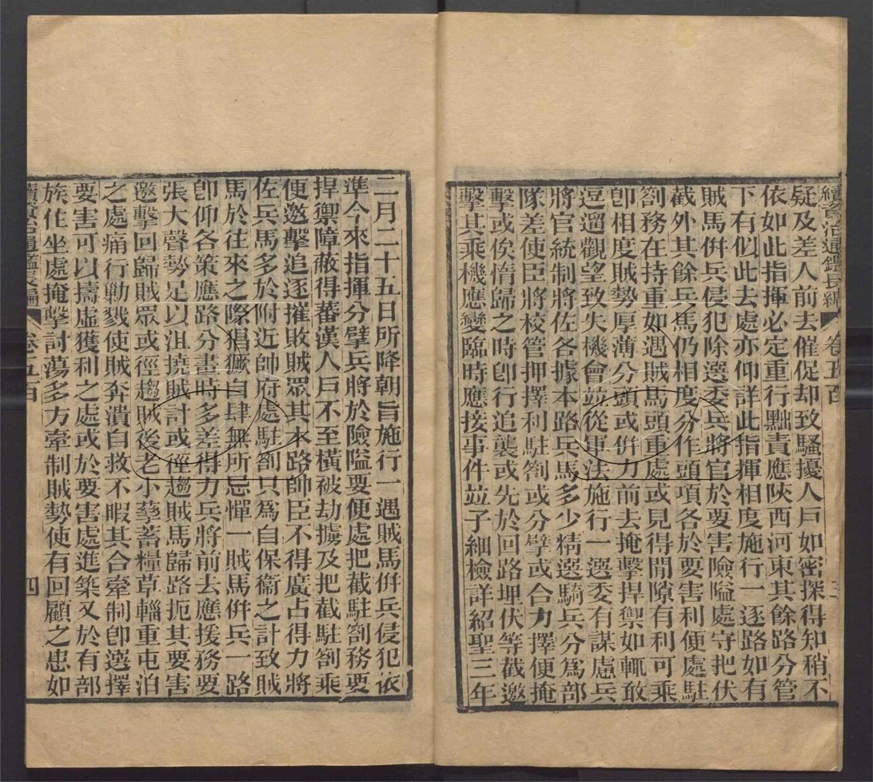 續資治通鑑長編 卷五百 三
疑及差人前去催促却致騷擾人戶如密探得知稍不
依如此指揮必定重行黜責應陝西河東其餘路分管
下有似此去處亦仰詳此指揮相度施行一逐路如有
賊馬併兵侵犯除選委兵將官於要害險隘處守把伏
截外其餘兵馬仍相度分作頭項各於要害利便處駐
劄務在持重如遇賊馬頭重處或見得間隙有利可乘
卽相度賊勢厚薄分頭或併力前去掩擊捍禦如輒敢
逗遛觀望致失機會竝從軍法施行一選委有謀慮兵
將官統制將佐各據本路兵馬多少精選騎兵分爲部
隊差使臣將校管押擇利駐劄或分擘或合力擇便掩
擊或俟惰歸之時卽行追襲或先於回路埋伏等截邀
擊其乘機應變臨時應接事件竝子細檢詳紹聖三年
二月二十五日所降朝旨施行一遇賊馬併兵侵犯依
準今來指揮分擘兵將於險隘要便處把截駐劄務要
捍禦障蔽得蕃漢人戶不至橫被劫擄及把截駐劄乘
便邀擊追逐摧敗賊眾其本路帥臣不得廣占得力將
佐兵馬多於附近帥府處駐劄只爲自保衞之計致賊
馬於往來之際猖獗自肆無所忌憚一賊馬併兵一路
卽仰各策應路分畫時多差得力兵將前去應援務要
張大聲勢足以沮撓賊計或徑趨賊馬歸路扼其要害
邀擊回歸賊眾或徑趨賊後老小孳蓄糧草輜重屯泊
之處痛行勦戮使賊奔潰自救不暇其合牽制卽選擇
要害可以擣虛獲利之處或於要害處進築又於有部
族住坐處掩擊討蕩多方牽制賊勢使有回顧之患如
續資治通鑑長編 卷五百 四